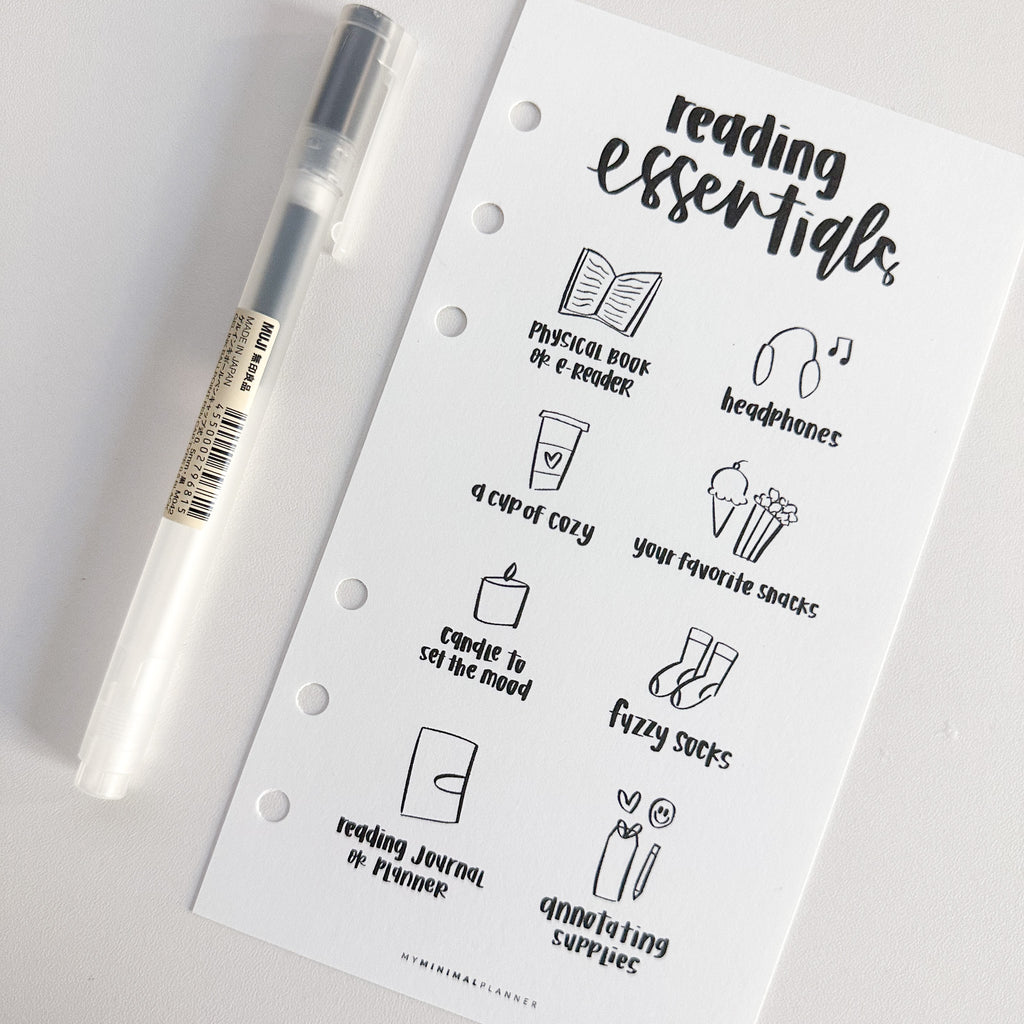 reading
essentials
PHYSICAL BOOK
OR e-ReadeR
headphones
a cup of cozy
your favorite snacks
candle to
set the mood
fuzzy socks
reading journal
OR PLANNER
annotating
supplies
MYMINIMALPLANNER
MUJI 無印良品
MADE IN JAPAN
4550002796815